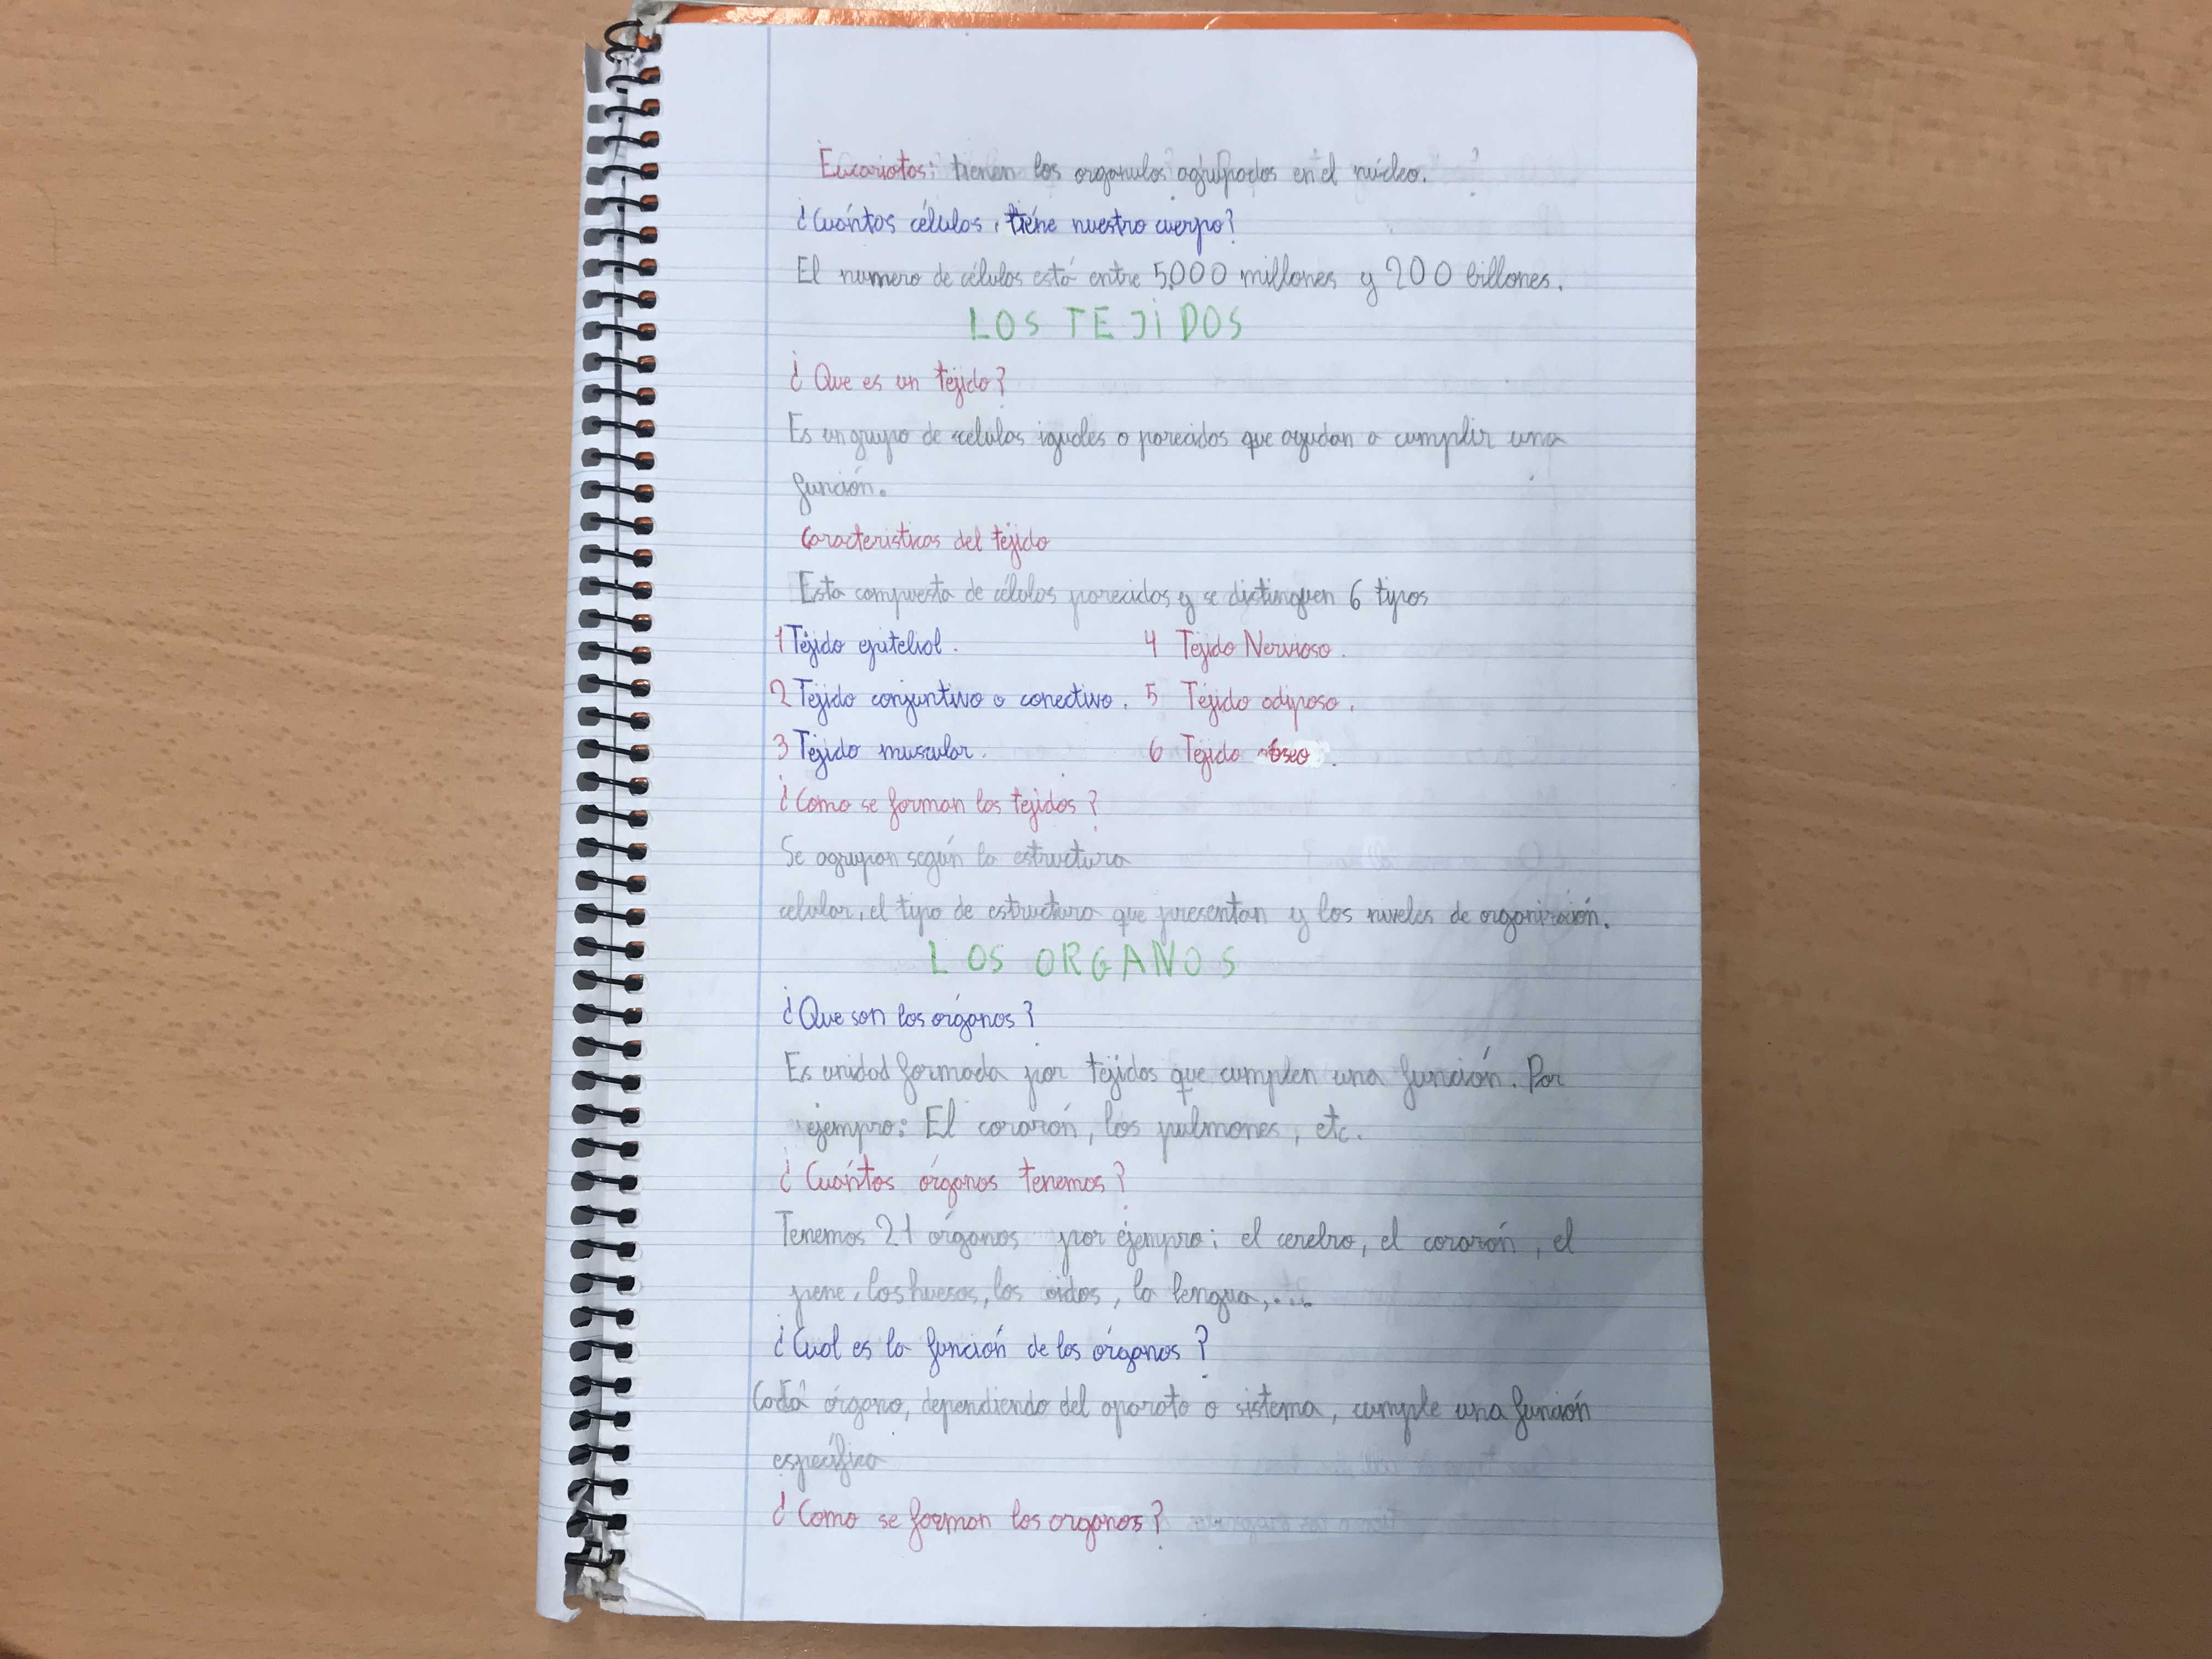 Eucariotas: tienen los organulos agrupados en el núcleo.
¿Cuántas células, tiene nuestro cuerpo?
El numero de células está entre 5.000 millones y 200 billones.
LOS TEJIDOS
¿Que es un tejido?
Es un grupo de celulas iguales o parecidas que ayudan a cumplir una
función.
Caracteristicas del tejido
Esta compuesta de células parecidas y se distinguen 6 tipos
1 Tejido epitelial. 4 Tejido Nervioso.
2 Tejido conjuntivo o conectivo. 5 Tejido adiposo.
3 Tejido muscular. 6 Tejido óseo.
¿Como se forman los tejidos?
Se agrupan según la estructura
celular, el tipo de estructura que presentan y los niveles de organización.
LOS ORGANOS
¿Que son los órganos?
Es unidad formada por tejidos que cumplen una función. Por
ejempro: El corazón, los pulmones, etc.
¿Cuántos órganos tenemos?
Tenemos 21 órganos por ejempro: el cerebro, el corazón, el
pene, los huesos, los oidos, la lengua,...
¿Cual es la función de los órganos?
Cada órgano, dependiendo del aparato o sistema, cumple una función
específica
¿Como se forman los organos?